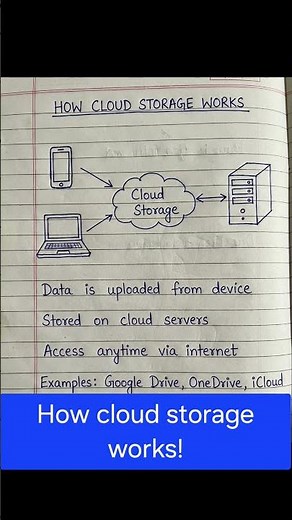 HOW CLOUD STORAGE WORKS
Cloud
Storage
Data is uploaded from device
Stored on cloud servers
Access anytime via internet
Examples: Google Drive, OneDrive, iCloud
How cloud storage
works!